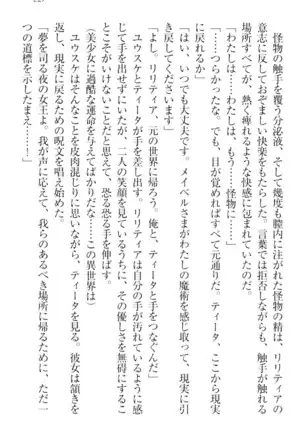 怪物の触手を覆う分泌液、そして幾度も膣内に注がれた怪物の精は、リリティアの
意志に反しておぞましい快楽をもたらした。言葉では拒否しながら、触手が触れる
場所すべてが、熱く痺れるような快感に包まれていたのだ。
「わたしは……わたしは、もう……怪物に……」
「……つらかったな。でも、目が覚めればすべて元通りだ。ティータ、ここから現実
に戻れるか」
「はい、いつでも大丈夫です。メイベルさまがわたしの魔術を感じ取って、現実に引
き戻してくださいます」
「よし。リリティア、元の世界に帰ろう。俺と、ティータと手をつなぐんだ」
ユウスケとティータが手を差し出す。リリティアは自分の手が汚れているように感
じて手を出せずにいたが、二人の笑顔を見ているうちに、その優しさを無碍にするこ
とがいけないことだと思えて、恐る恐る手を伸ばす。
（美少女に過酷な運命を与えてばかりだな……この異世界は）
ユウスケは皮肉混じりに思いながら、ティータを見る。彼女は頷きを
返し、現実に戻るための呪文を唱え始めた。
「夢を司る夜の女王よ。我が声に応えて、我らのあるべき場所に帰るために、ただ一
つの道標を示したまえ……！」